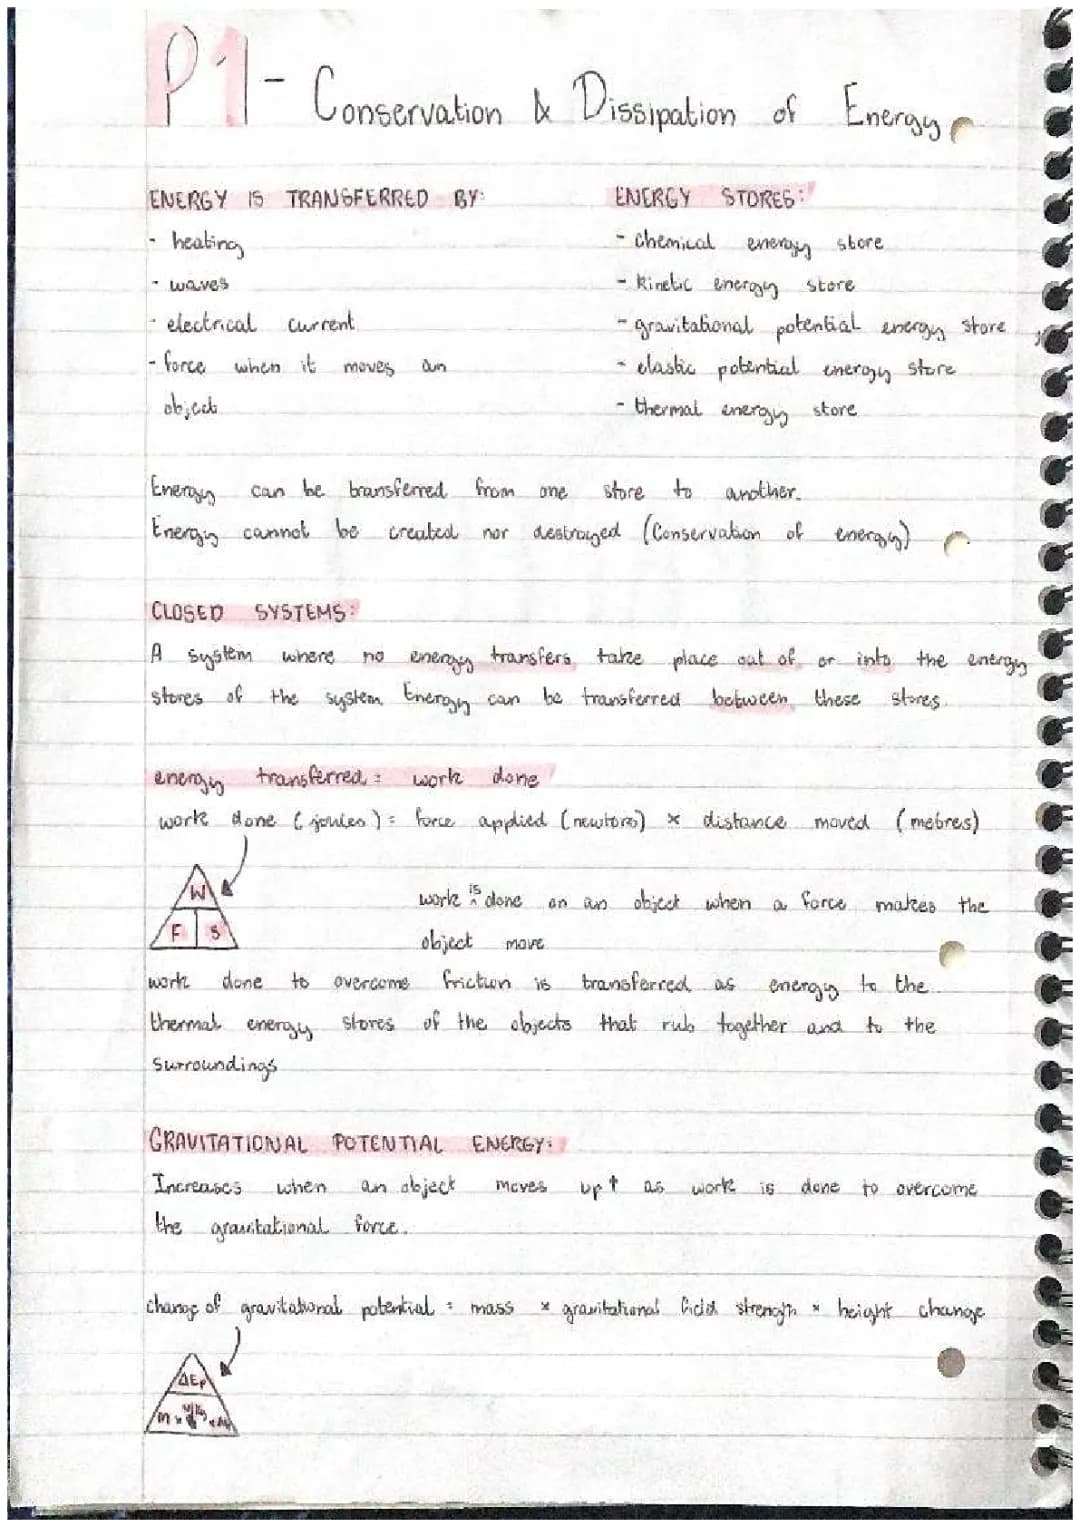 P1 - Conservation & Dissipation of Energy
ENERGY IS TRANSFERRED BY:
- heating
- waves
- electrical current
- force when it moves an
object
ENERGY STORES:
- chemical energy store
- kinetic energy store
- gravitational potential energy store
- elastic potential energy store
- thermal energy store
Energy can be transferred from one store to another.
Energy cannot be created nor destroyed (Conservation of energy)
CLOSED SYSTEMS:
A system where no energy transfers take place out of or into the energy
stores of the system. Energy can be transferred between these stores.
energy transferred = work done
work done (joules) = force applied (newtons) × distance moved (metres)
W
F S
work is done on an object when a force makes the
object move
work done to overcome friction is transferred as energy to the
thermal energy stores of the objects that rub together and to the
surroundings
GRAVITATIONAL POTENTIAL ENERGY:
Increases when an object moves up ↑ as work is done to overcome
the gravitational force.
change of gravitational potential = mass × gravitational field strength × height change
ΔEp
m ×